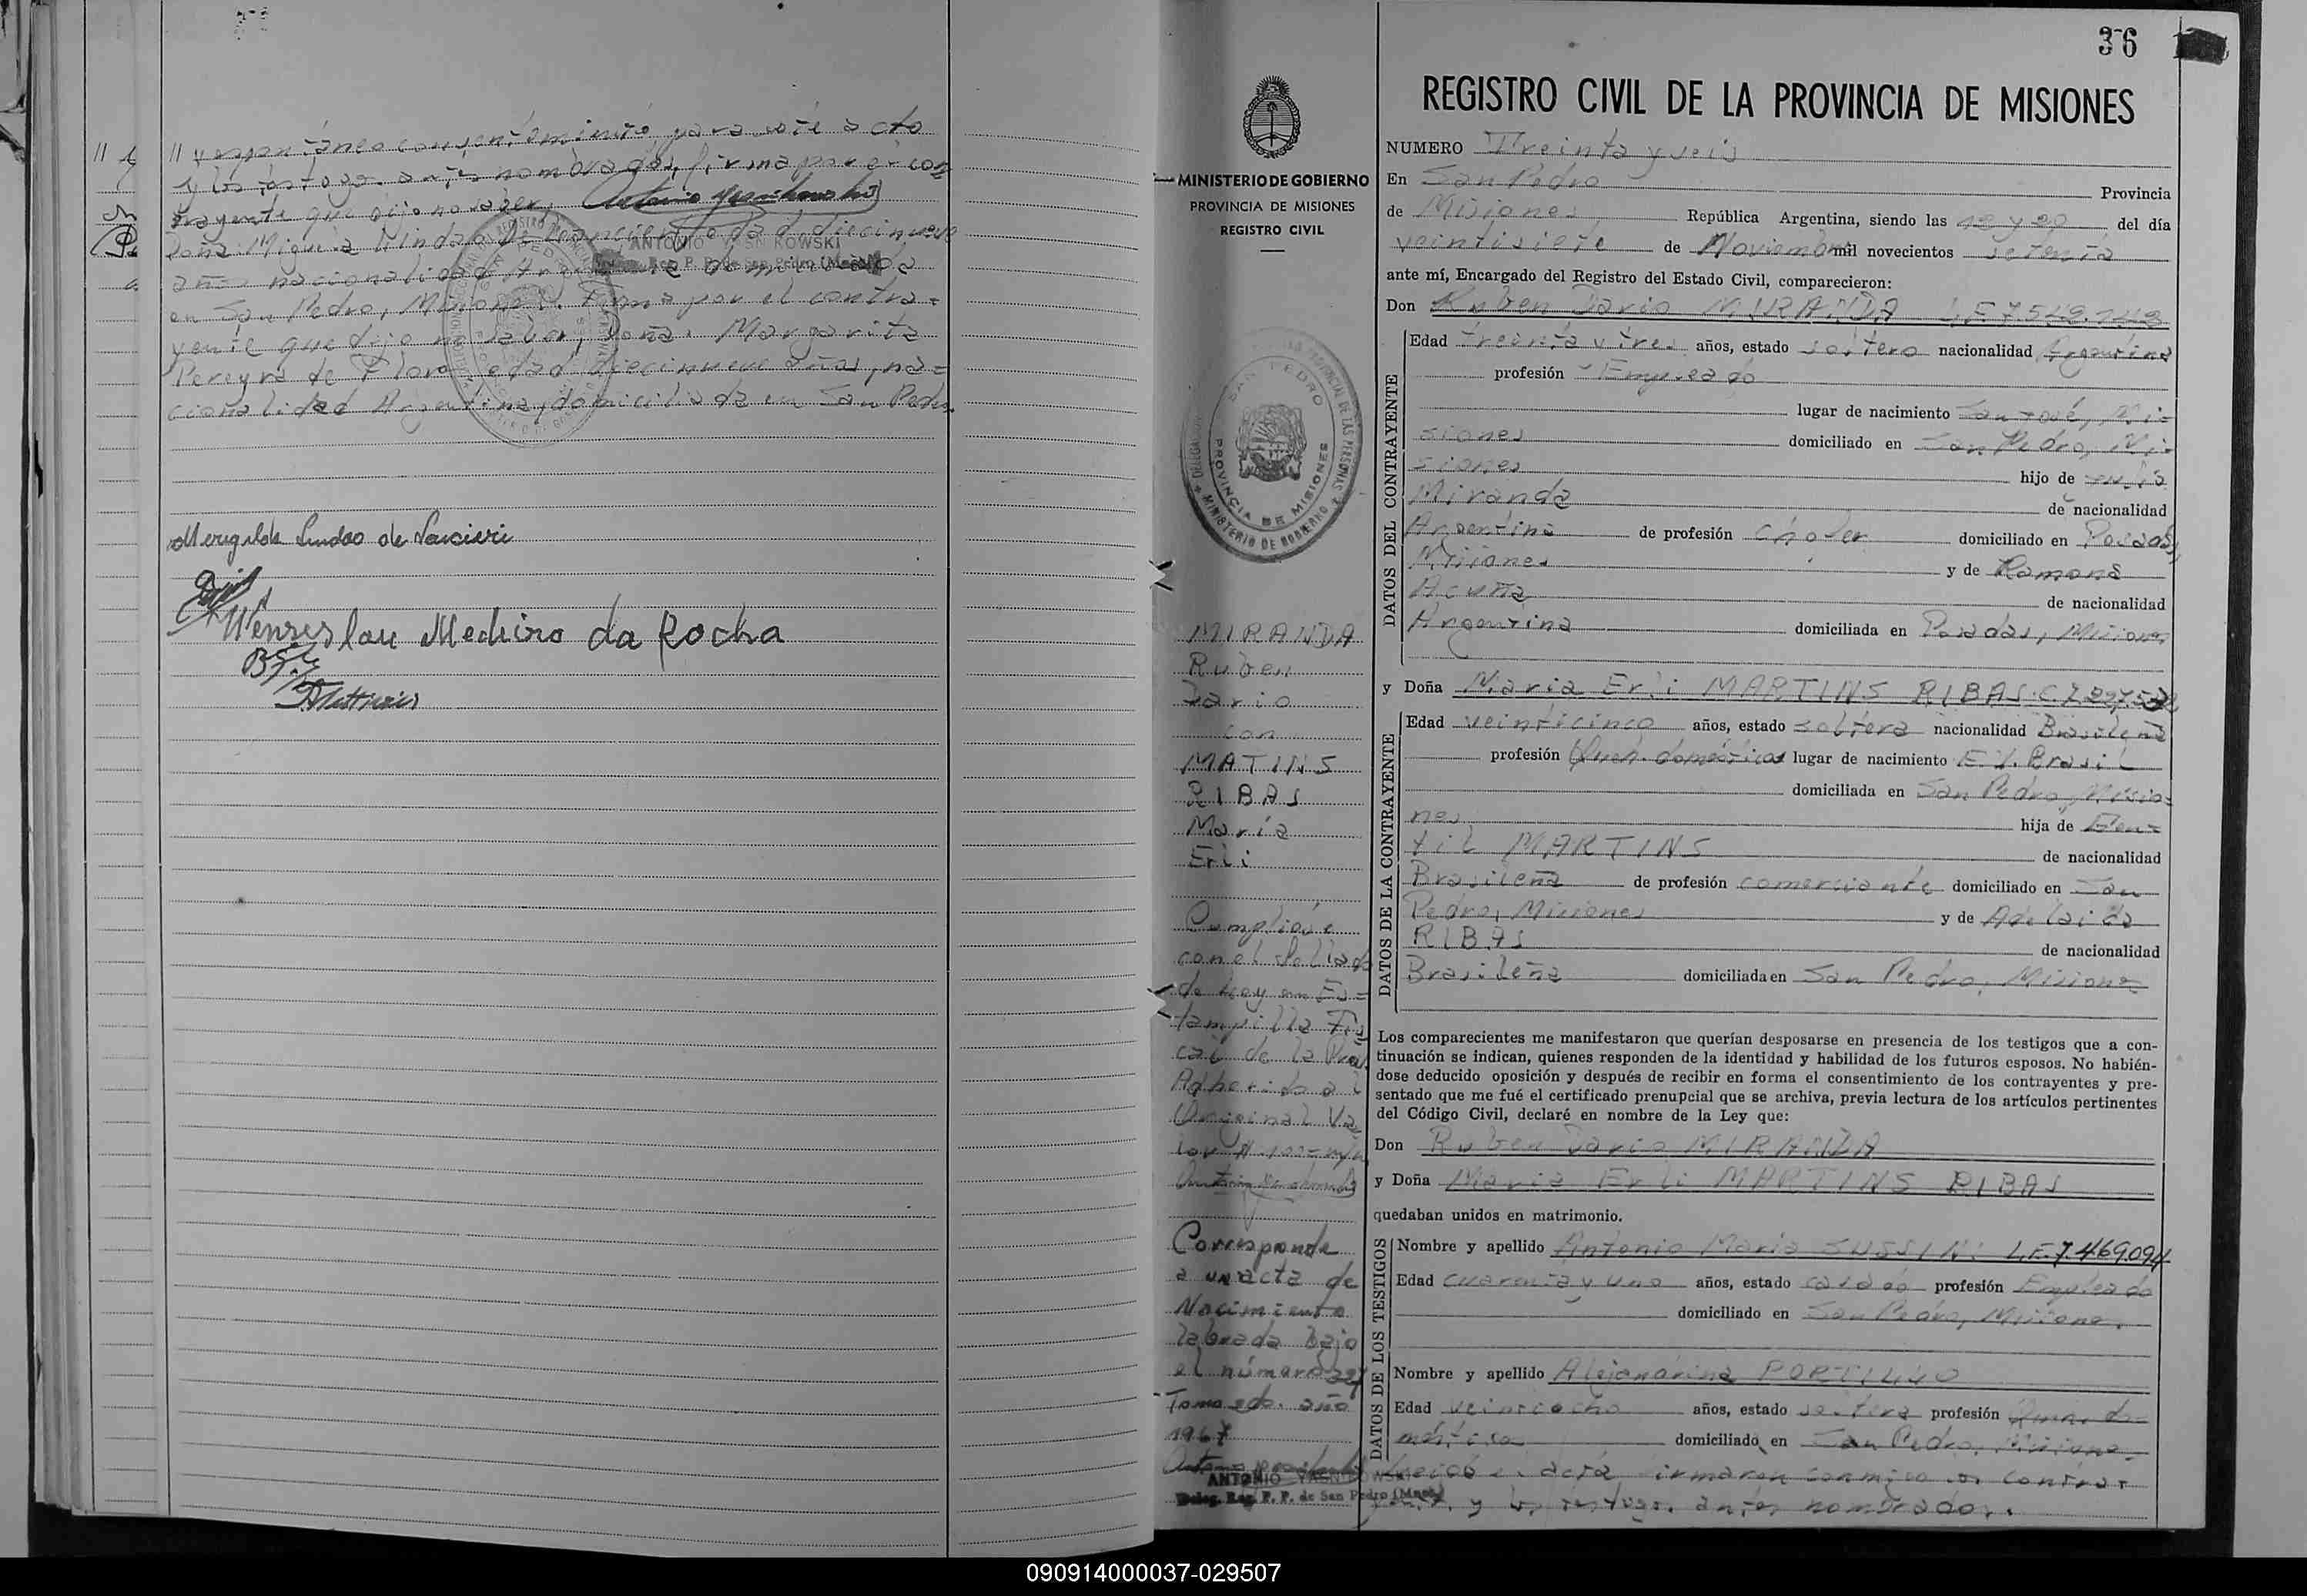 // y espontáneo consentimiento para este acto
y los testigos antes nombrados, firma por el con
trayente que dijo no saber,
Doña edad diecinueve
años nacionalidad Argentina domiciliada
en San Pedro, Misiones. Firma por el contra=
yente que dijo no saber, Doña. Margarita
Pereyra de Flores edad diecinueve años, na=
cionalidad Argentina, domiciliada en San Pedro
ANTONIO
Reg. P. P. de San Pedro (Mnes)
Mediro da Rocha
36
REGISTRO CIVIL DE LA PROVINCIA DE MISIONES
MINISTERIO DE GOBIERNO
PROVINCIA DE MISIONES
REGISTRO CIVIL
SAN PEDRO
PROVINCIA DE MISIONES
MINISTERIO DE GOBIERNO
MIRANDA
Ruben
Dario
con
MATINS
RIBAS
María
Erli
Cumplióse
con el Sellado
de Ley en Es=
tampilla Fis
cal de la Prov.
Adherida al
Original Va
lor $ 100= m/n
Corresponde
a un acta de
Nacimiento
labrada bajo
el número 227
Tomo 2do. año
1967
ANTONIO
Deleg. Reg. P. P. de San Pedro (Mnes)
NUMERO Treinta y seis
En San Pedro Provincia
de Misiones República Argentina, siendo las del día
veintisiete de Noviembre mil novecientos setenta
ante mí, Encargado del Registro del Estado Civil, comparecieron:
Don Ruben Dario MIRANDA L.E.7.542.743
DATOS DEL CONTRAYENTE
Edad treinta y tres años, estado soltero nacionalidad Argentina
profesión Empleado
lugar de nacimiento San José, Mi=
siones domiciliado en San Pedro, Mi=
siones hijo de
Miranda de nacionalidad
Argentina de profesión Chofer domiciliado en Posadas,
Misiones y de Ramona
Acuña de nacionalidad
Argentina domiciliada en Posadas, Misiones
y Doña Maria Erli MARTINS RIBAS
DATOS DE LA CONTRAYENTE
Edad veinticinco años, estado soltera nacionalidad Brasileña
profesión Queh. domésticos lugar de nacimiento Brasil
domiciliada en San Pedro, Misio=
nes hija de
til MARTINS de nacionalidad
Brasileña de profesión comerciante domiciliado en San
Pedro, Misiones y de Adelaida
RIBAS de nacionalidad
Brasileña domiciliada en San Pedro, Misiones
Los comparecientes me manifestaron que querían desposarse en presencia de los testigos que a con-
tinuación se indican, quienes responden de la identidad y habilidad de los futuros esposos. No habién-
dose deducido oposición y después de recibir en forma el consentimiento de los contrayentes y pre-
sentado que me fué el certificado prenupcial que se archiva, previa lectura de los artículos pertinentes
del Código Civil, declaré en nombre de la Ley que:
Don Ruben Dario MIRANDA
y Doña Maria Erli MARTINS RIBAS
quedaban unidos en matrimonio.
DATOS DE LOS TESTIGOS
Nombre y apellido Antonio Maria SUSSINI L.E.7.469.094
Edad cuarenta y uno años, estado casado profesión Empleado
domiciliado en San Pedro, Misiones.
Nombre y apellido Alejandrina PORTILLO
Edad veintiocho años, estado soltera profesión Queh. do=
méstico domiciliado en San Pedro, Misiones.
acta firmaron conmigo los contra=
y los testigos antes nombrados.
090914000037-029507